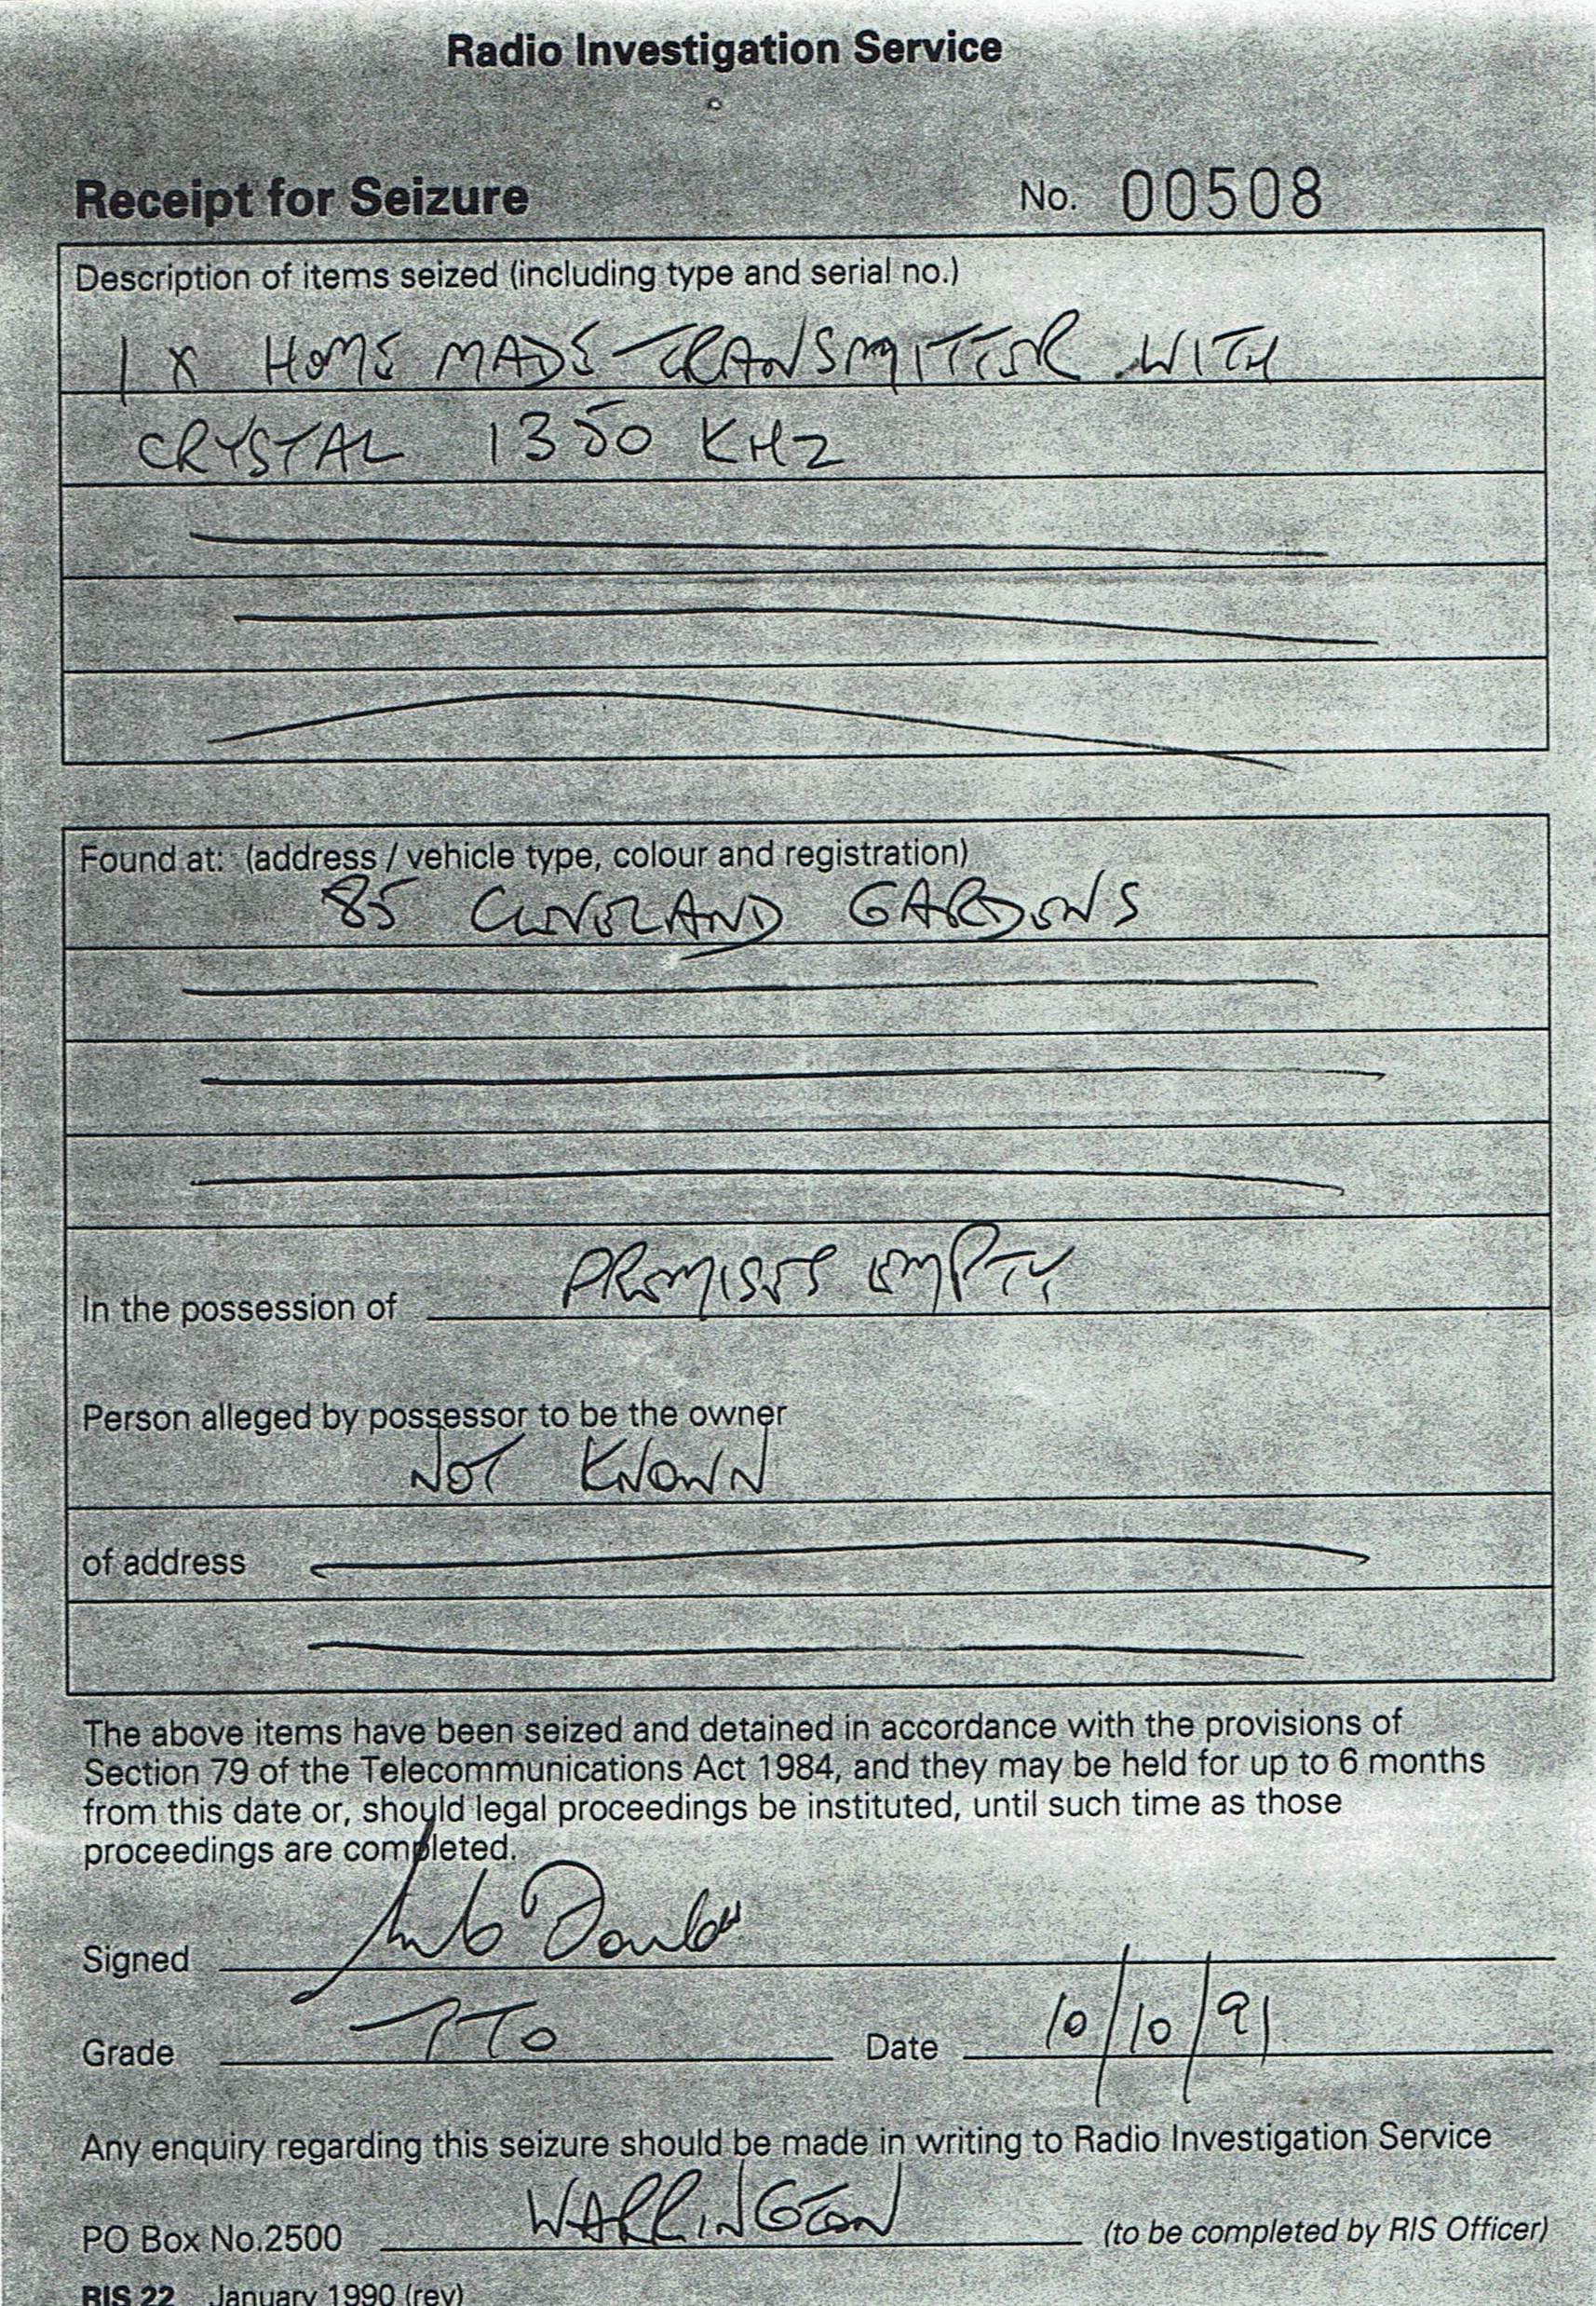 Radio Investigation Service
Receipt for Seizure No. 00508
Description of items seized (including type and serial no.)
1 X HOME MADE TRANSMITTER WITH
CRYSTAL 1350 KHZ
Found at: (address / vehicle type, colour and registration)
85 CLEVELAND GARDENS
In the possession of PREMISES EMPTY
Person alleged by possessor to be the owner
NOT KNOWN
of address
The above items have been seized and detained in accordance with the provisions of
Section 79 of the Telecommunications Act 1984, and they may be held for up to 6 months
from this date or, should legal proceedings be instituted, until such time as those
proceedings are completed.
Signed
Grade TTO Date 10/10/91
Any enquiry regarding this seizure should be made in writing to Radio Investigation Service
PO Box No.2500 WARRINGTON (to be completed by RIS Officer)
RIS 22 January 1990 (rev)